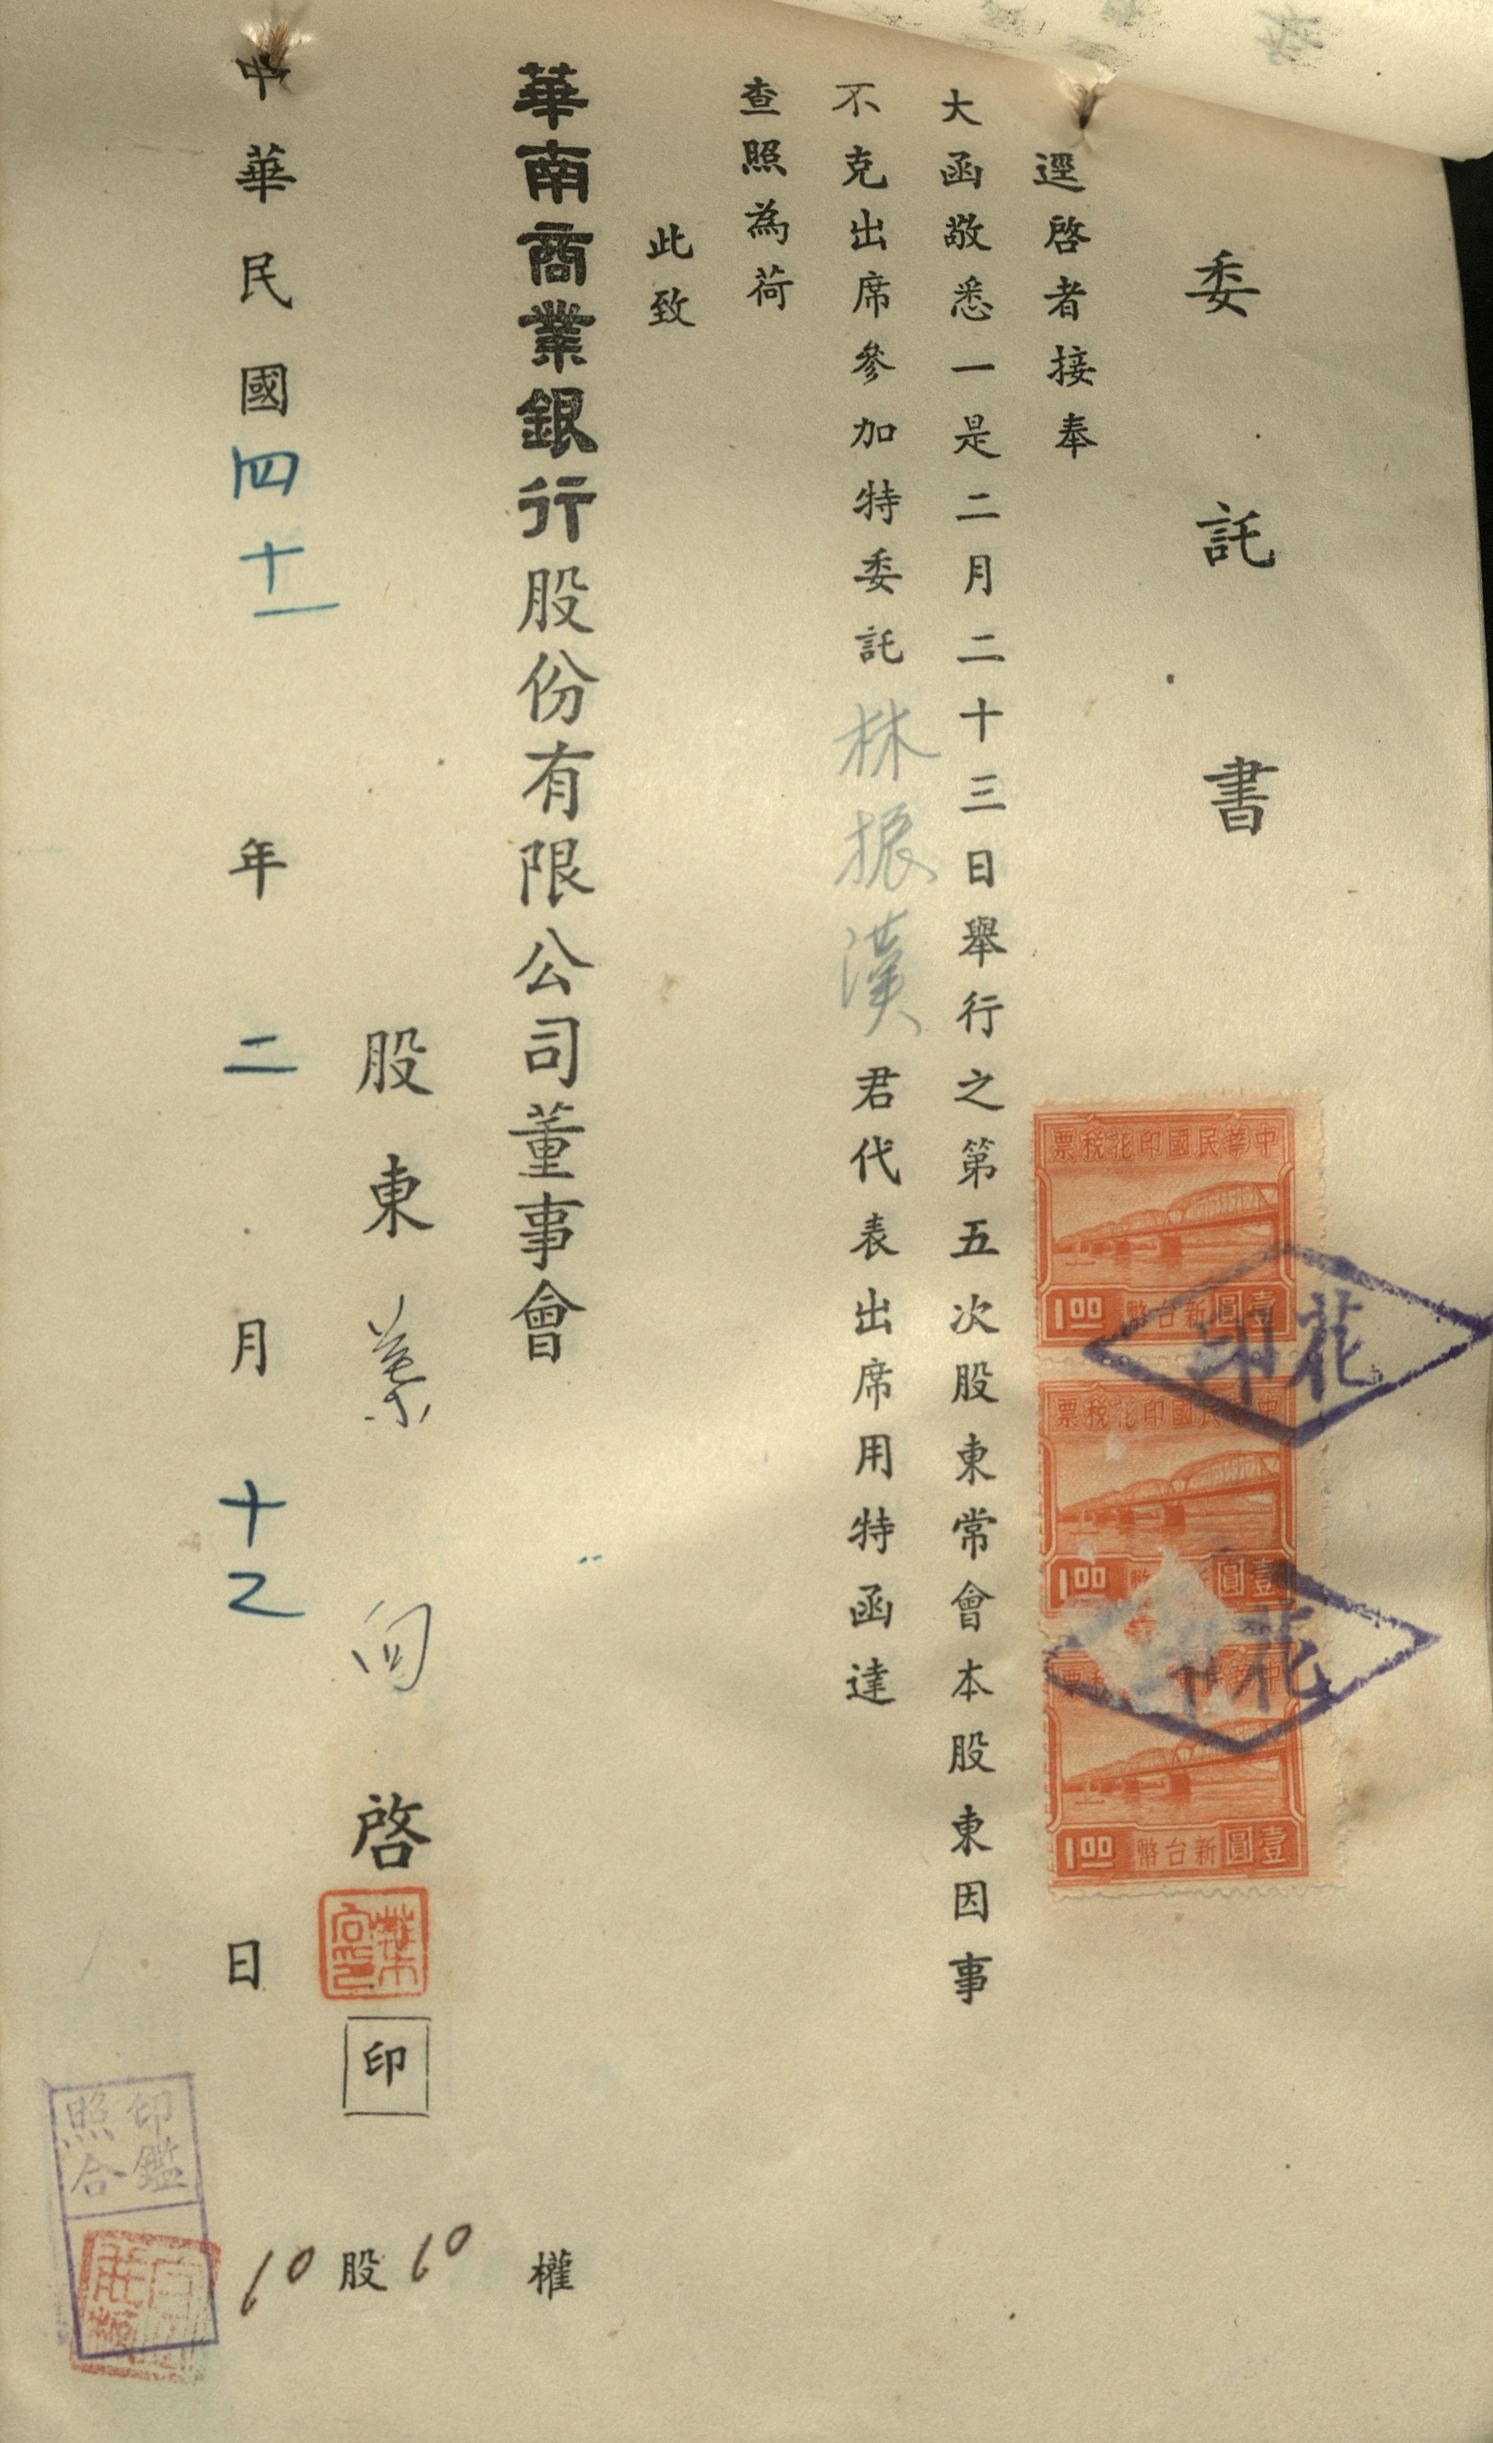 委託書
逕啓者接奉
大函敬悉一是二月二十三日舉行之第五次股東常會本股東因事
不克出席參加特委託林振漢君代表出席用特函達
查照為荷
此致
華南商業銀行股份有限公司董事會
股東葉向啓
印
中華民國四十一年二月十乙日
10股10權
中華民國印花稅票
壹圓新台幣
1.00
中華民國印花稅票
壹圓新台幣
1.00
中華民國印花稅票
壹圓新台幣
1.00
花印
花印
印鑑
照合